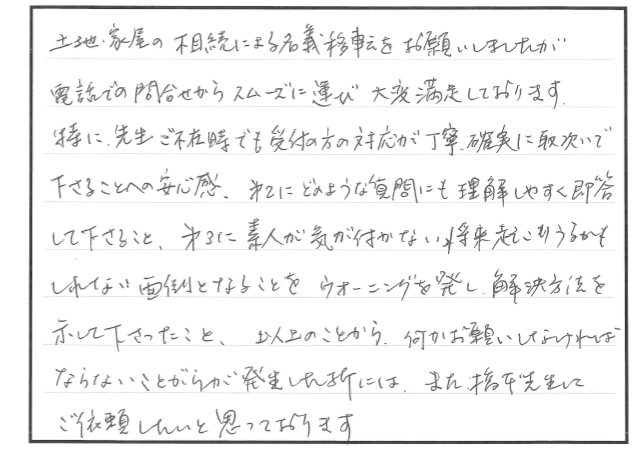 土地・家屋の相続による名義移転をお願いしましたが
電話での問合せからスムーズに運び大変満足しております。
特に、先生ご不在時でも受付の方の対応が丁寧、確実に取次いで
下さることへの安心感、第2にどのような質問にも理解しやすく即答
して下さること、第3に素人が気が付かない、将来起こりうるかも
しれない面倒となることをウォーニングを発し、解決方法を
示して下さったこと、以上のことから、何かお願いしなければ
ならないことがらが発生した折には、また橋本先生に
ご依頼したいと思っております